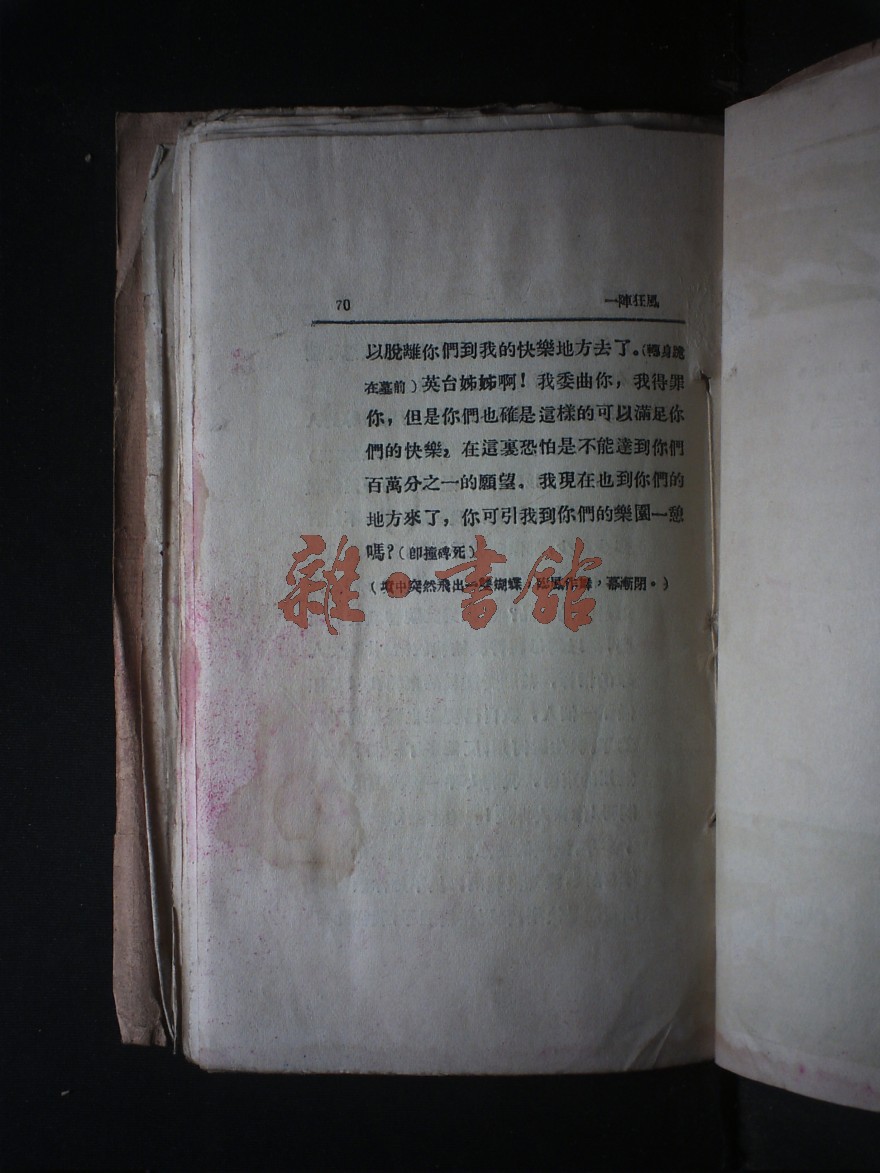 70 一陣狂風
以脫離你們到我的快樂地方去了。(轉身跪
在墓前)英台姊姊啊!我委曲你,我得罪
你,但是你們也確是這樣的可以滿足你
們的快樂,在這裏恐怕是不能達到你們
百萬分之一的願望。我現在也到你們的
地方來了,你可引我到你們的樂園一憩
嗎?(卽撞碑死)
(墳中突然飛出一雙蝴蝶,臨風作舞,幕漸閉。)
雜·書館